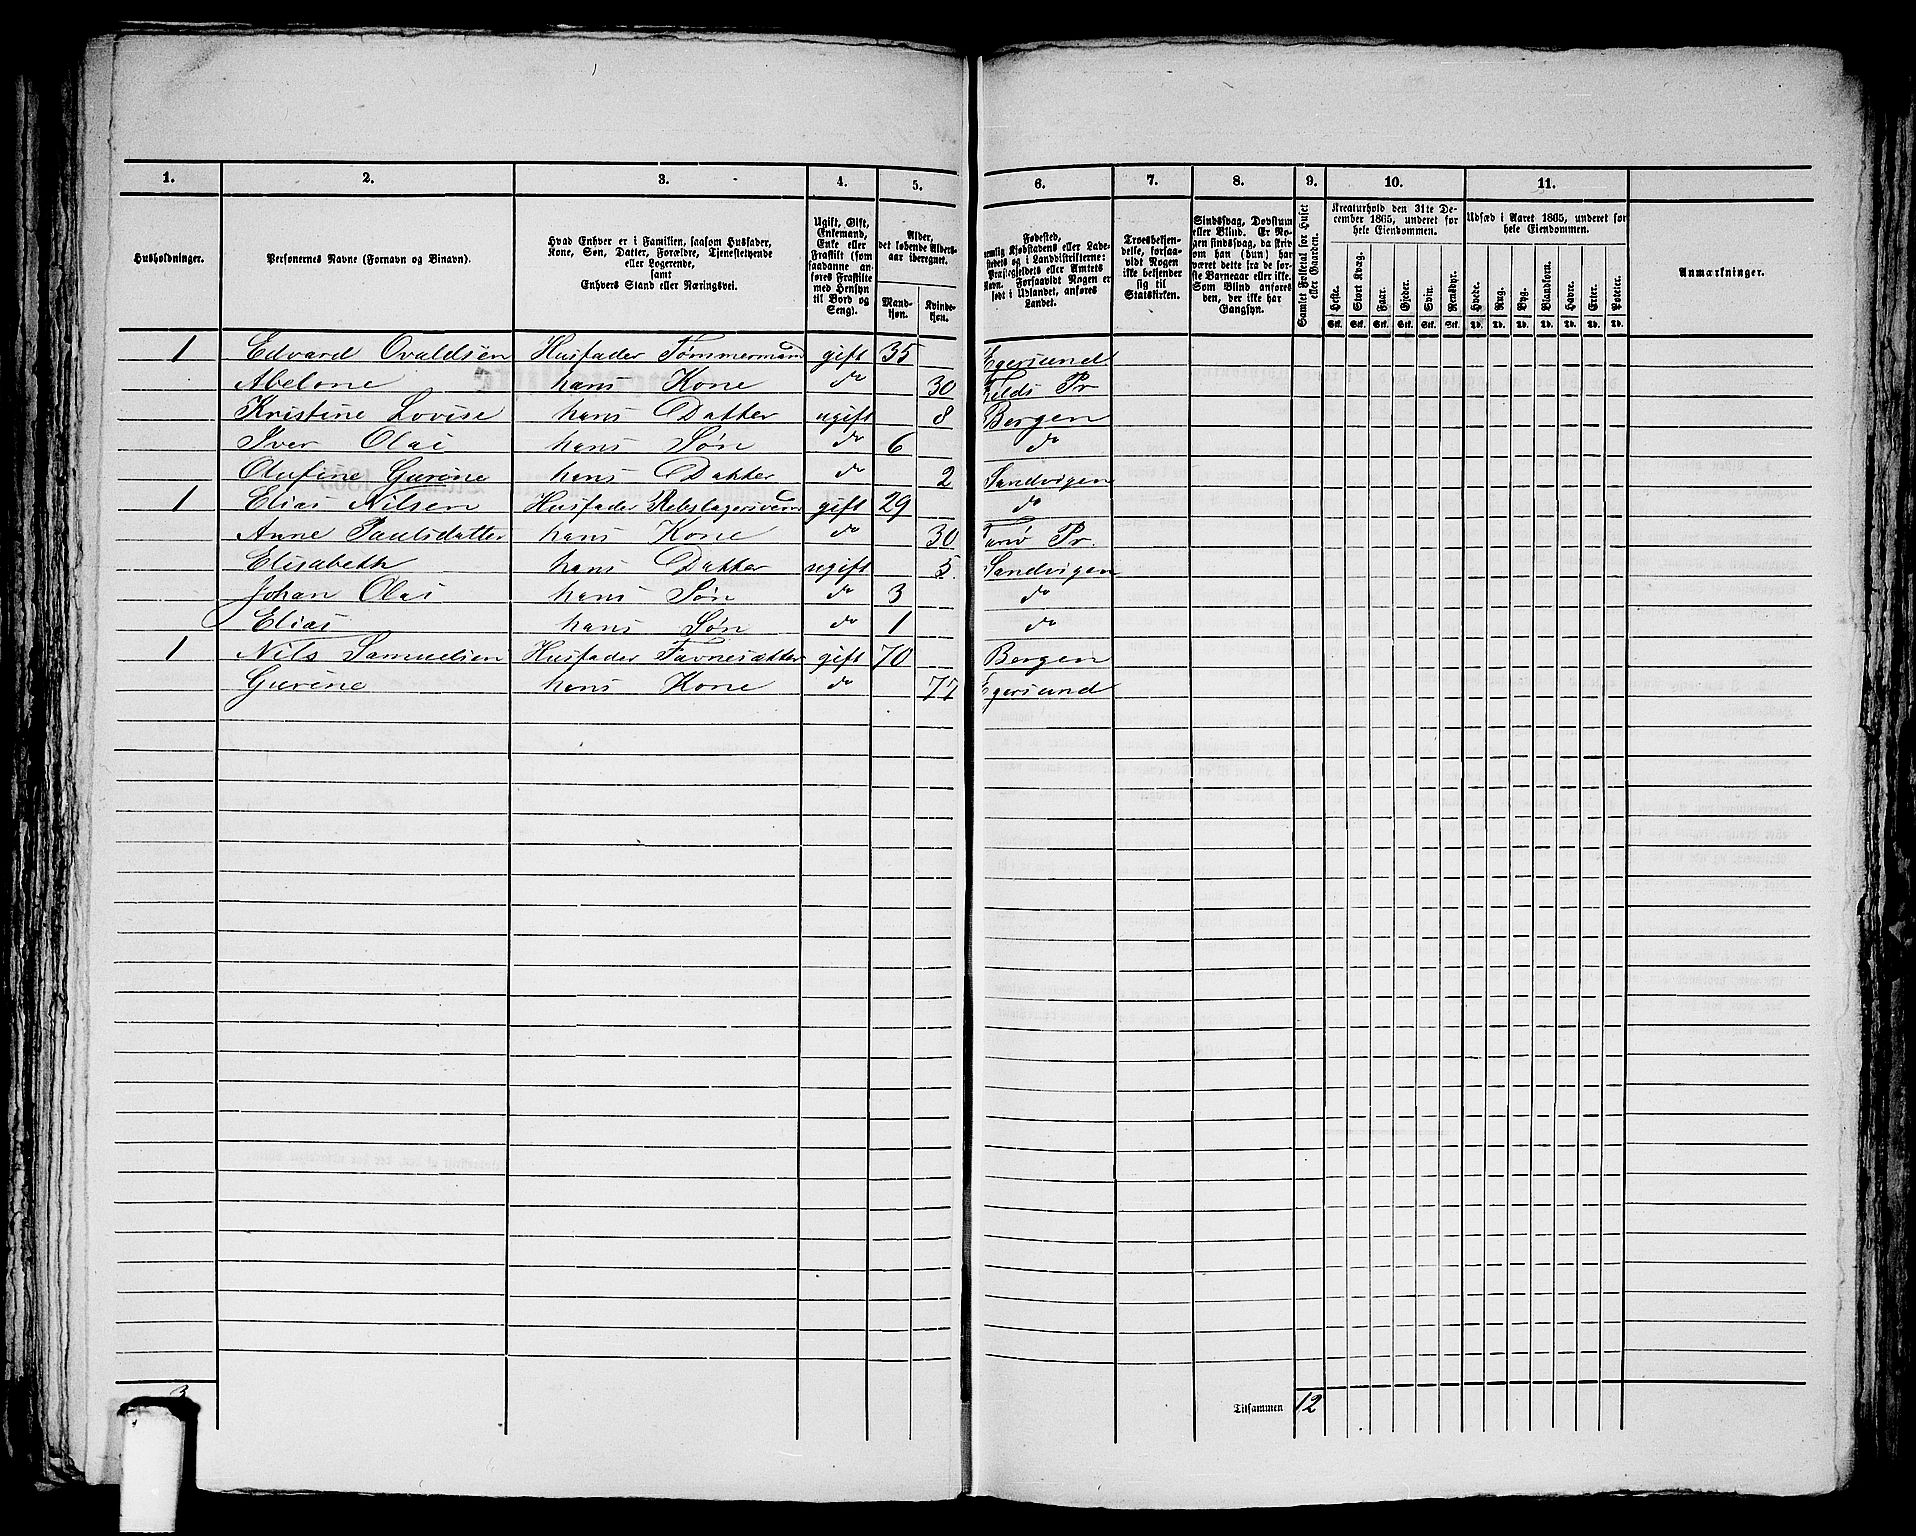 1. 2. 3. 4. 5. 6. 7. 8. 9. 10. 11.
Husholdninger.
Personernes Navne (Fornavn og Binavn).
Hvad Enhver er i Familien, saasom Husfader,
Kone, Søn, Datter, Forældre, Tjenestetyende
eller Logerende,
samt
Enhvers Stand eller Næringsvei.
Ugift, Gift,
Enkemand,
Enke eller
Fraskilt (som
saadanne an-
føres Fraskilte
med Hensyn
til Bord og
Seng).
Alder,
det løbende Alders-
aar iberegnet.
Mand-
kjøn.
Kvinde-
kjøn.
Fødested,
nemlig Kjøbstadens eller Lade-
stedets og i Landdistrikterne:
Præstegjeldets eller Amtets
Navn. Forsaavidt Nogen er
født i Udlandet, anføres
Landet.
Troesbekjen-
delse, forsaa-
vidt Nogen
ikke bekjender
sig til
Statskirken.
Sindssvag, Døvstum
eller Blind. Er No-
gen sindssvag, da skriv
om han (hun) har
været dette fra de før-
ste Barneaar eller ikke.
Som Blind anføres
den, der ikke har
Gangsyn.
Samlet Folketal for Huset
eller Gaarden.
Kreaturhold den 31te De-
cember 1865, underet for
hele Eiendommen.
Heste. Stort Kvæg. Faar. Gjeder. Svin. Rensdyr.
Stk. Stk. Stk. Stk. Stk. Stk.
Udsæd i Aaret 1865, underet for
hele Eiendommen.
Hvede. Rug. Byg. Blandkorn. Havre. Erter. Poteter.
Td. Td. Td. Td. Td. Td. Td.
Anmærkninger.
1 Edvard Ovaldsen Husfader Tømmermand gift 35 Egersund
Abelone hans Kone do 30 Felds Pr
Kristine Lovise hans Datter ugift 8 Bergen
Iver Olai hans Søn do 6 do
Olufine Gurine hans Datter do 2 Sandvigen
1 Elias Nilsen Husfader Rebslagersvend gift 29 do
Anne Paulsdatter hans Kone do 30 Pr.
Elisabeth hans Datter ugift 5 Sandvigen
Johan Olai hans Søn do 3 do
Elias hans Søn do 1 do
1 Nils Samuelsen Husfader Favnesætter gift 70 Bergen
Gurine hans Kone do 77 Egersund
3 Tilsammen 12